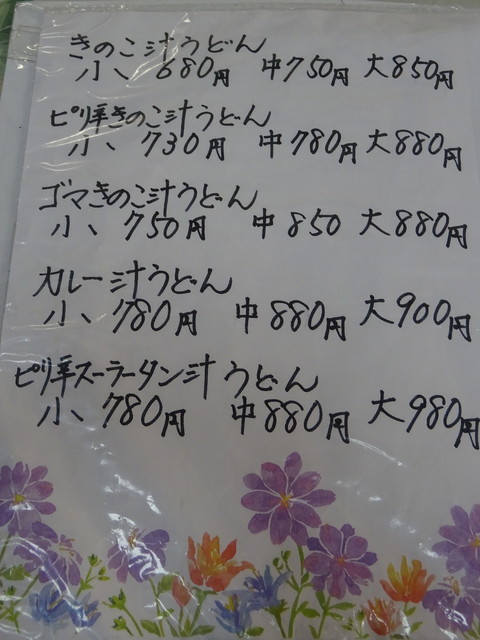 きのこ汁うどん
小、680円 中750円 大850円
ピリ辛きのこ汁うどん
小、730円 中780円 大880円
ゴマきのこ汁うどん
小、750円 中850 大880円
カレー汁うどん
小、780円 中880円 大900円
ピリ辛スーラータン汁うどん
小、780円 中880円 大980円